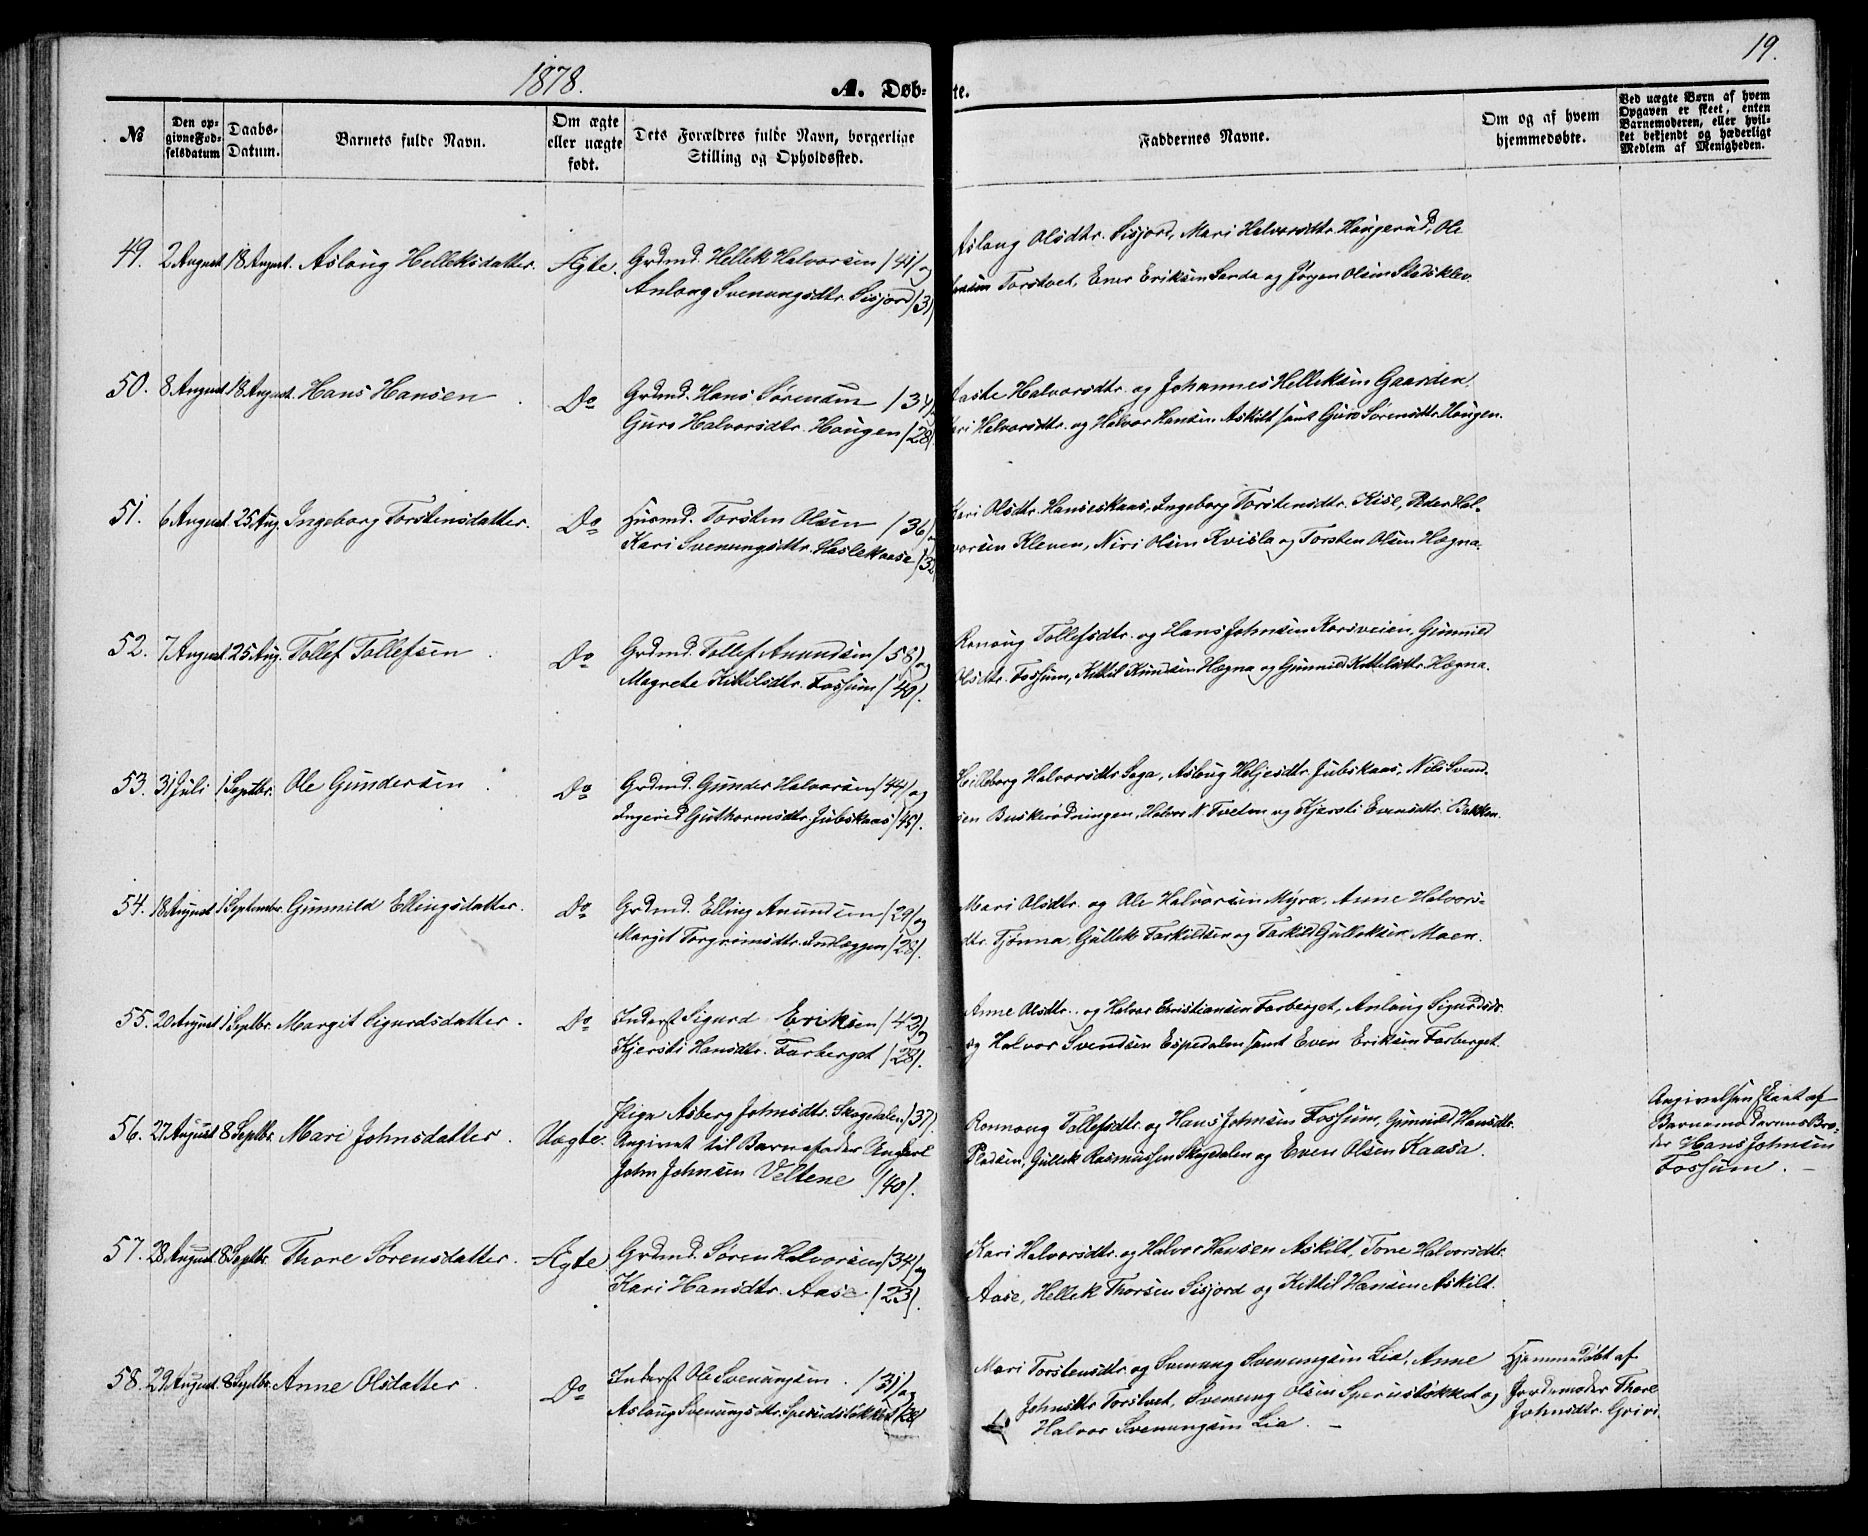 1878.
A. Døb-
te.
19.
№
Den op-
givne Fød-
selsdatum
Daabs-
Datum.
Barnets fulde Navn.
Om ægte
eller uægte
født.
Dets Forældres fulde Navn, borgerlige
Stilling og Opholdssted.
Faddernes Navne.
Om og af hvem
hjemmedøbte.
Ved uægte Børn af hvem
Opgaven er skeet, enten
Barnemoderen, eller hvil-
ket bekjendt og hæderligt
Medlem af Menigheden.
49. 2 August 18 August. Aslaug Helleksdatter. Ægte. Grdmd. Hellek Halvorsen /41/ og
Anlaug Svenungsdtr. Sisjord /3
Aslaug Olsdtr. Sisjord, Mari Halvorsdtr. Haugerud, Ole
Torstvet, Ener Eriksen Sanda og Jørgen Olsen Stadsklev.
50. 8 August 18 August. Hans Hansen Do Grdmd. Hans Sørensen /34/
Guro Halvorsdtr. Haugen /28/.
Aaste Halvorsdtr. og Johannes Helleksen Gaarden,
Kari Halvorsdtr. og Halvor Hansen Askilt samt Guro Sørensdtr. Haugen.
51. 6 August 25 Aug. Ingeborg Torstensdatter. Do Husmd. Torsten Olsen /36/
Kari Svenungsdtr. Haslekaasa /32
Kari Olsdtr. Hanseskaas, Ingeborg Torstensdtr. Kise, Peder Hal-
vorsen Kleven, Niri Olsen Kvisla og Torsten Olsen Hægna.
52. 7 August 25 Aug. Tollef Tollefsen Do Grdmd. Tollef Anundsen /58/ og
Magrete Kittilsdtr. Fossum /40/.
Ronoug Tollefsdtr. og Hans Johnsen Korsveien, Gunnild
Olsdtr. Fossum, Kittil Knudsen Hægna og Gunnild Kittilsdtr. Hægna.
53. 31 Juli 1 Septbr. Ole Gundersen Do Grdmd. Gunder Halvorsen /44/ og
Ingerid Guthormsdtr. Jubskaas /45/.
Hilleborg Halvorsdtr. Saga, Aslaug Heljesdtr. Jubskaas, Nils Svend-
sen Buskerødningen, Halvor N. Tveten og Kjersti Evensdtr. Bakken.
54. 18 August 1 September. Gunnild Ellingsdatter. Do Grdmd. Elling Anundsen /29/ og
Margit Torgrimsdtr. Indlæggen /28/.
Mari Olsdtr. og Ole Halvorsen Myra, Anne Halvors-
dtr. Tjønna, Gullek Tarkildsen og Tarkild Gulleksen Moen.
55. 20 August 1 Septbr. Margit Sigurdsdatter. Do Inderst Sigurd Eriksen /42/ og
Kjersti Hansdtr. Farberget /28/.
Anne Olsdtr. og Halvor Christiansen Farberget, Anlaug Sigurdsdtr.
og Halvor Svendsen Espedalen samt Even Eriksen Farberget.
56. 27 August 8 Septbr. Mari Johnsdatter. Uægte. Pige Asberg Johnsdtr. Skogedalen /37/.
Angivet til Barnefader Ungkarl
John Johnsen Veltene /40/.
Ronnoug Tollefsdtr. og Hans Johnsen Fossum, Gunnild Hansdtr.
Pladsen, Gullek Rasmussen Skogedalen og Even Olsen Kaasa.
Angivelsen skeet af
Barnemoderens Bro-
der Hans Johnsen
Fossum.
57. 28 August 8 Septbr. Thore Sørensdatter. Ægte Grdmd. Søren Halvorsen /34/ og
Kari Hansdtr. Aase /23/.
Kari Halvorsdtr. og Halvor Hansen Askilt, Tone Halvorsdtr.
Aase, Hellek Thorsen Sisjord og Kittil Hansen Askilt.
58. 29 August. 8 Septbr. Anne Olsdatter Do Inderst Ole Svenungsen /31/ og
Aslaug Svenungsdtr. Sperudsløkket /28/
Mari Torstensdtr. og Svenung Svenungsen Lia, Anne
Johnsdtr. Torstvet, Svenung Olsen Sperusløkket og
Halvor Svenungsen Lia.
Hjemmedøbt af
Jordemoder Thore
Johnsdtr. Grivi.